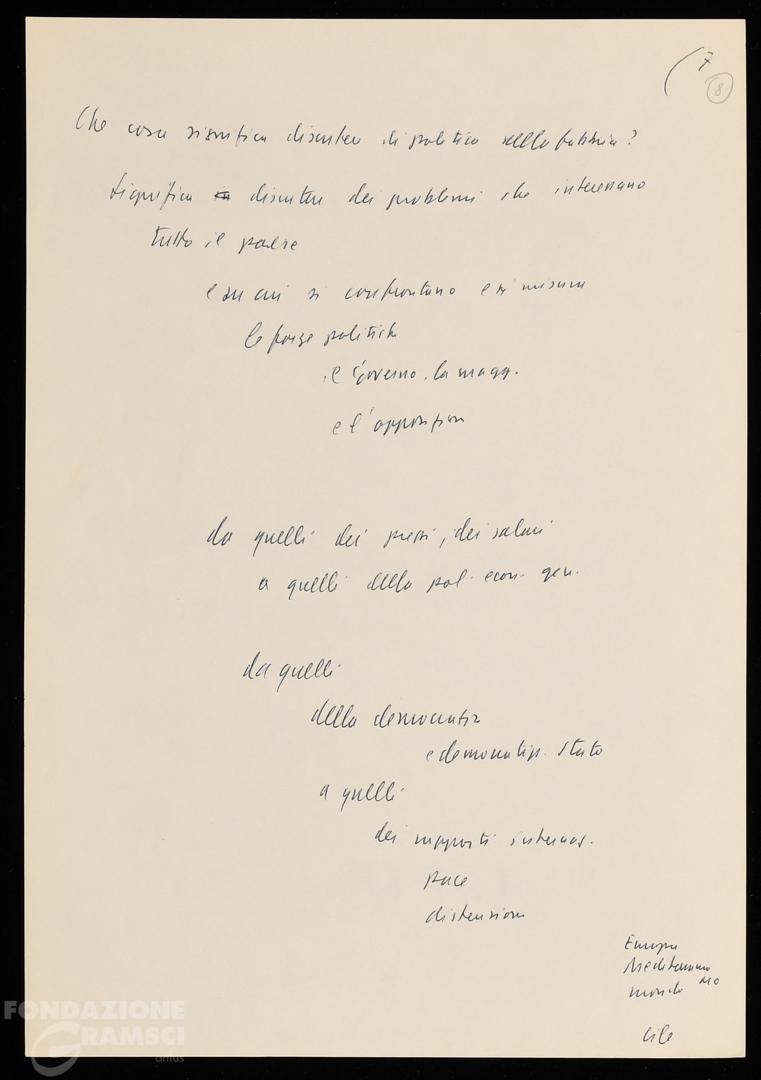 7
8
Che cosa significa discutere di politica nella fabbrica?
Significa in discutere dei problemi che interessano
tutto il paese
e su cui si confrontano e si misurano
le forze politiche
il Governo, la magg.
e l'opposizione
da quelli dei prezzi, dei salari
a quelli della pol. econ. gen.
da quelli
della democrazia
e democratizz. Stato
a quelli
dei rapporti internaz.
pace
distensione
Europa
Mediterraneo
mondo MO
Cile
FONDAZIONE
GRAMSCI
onlus